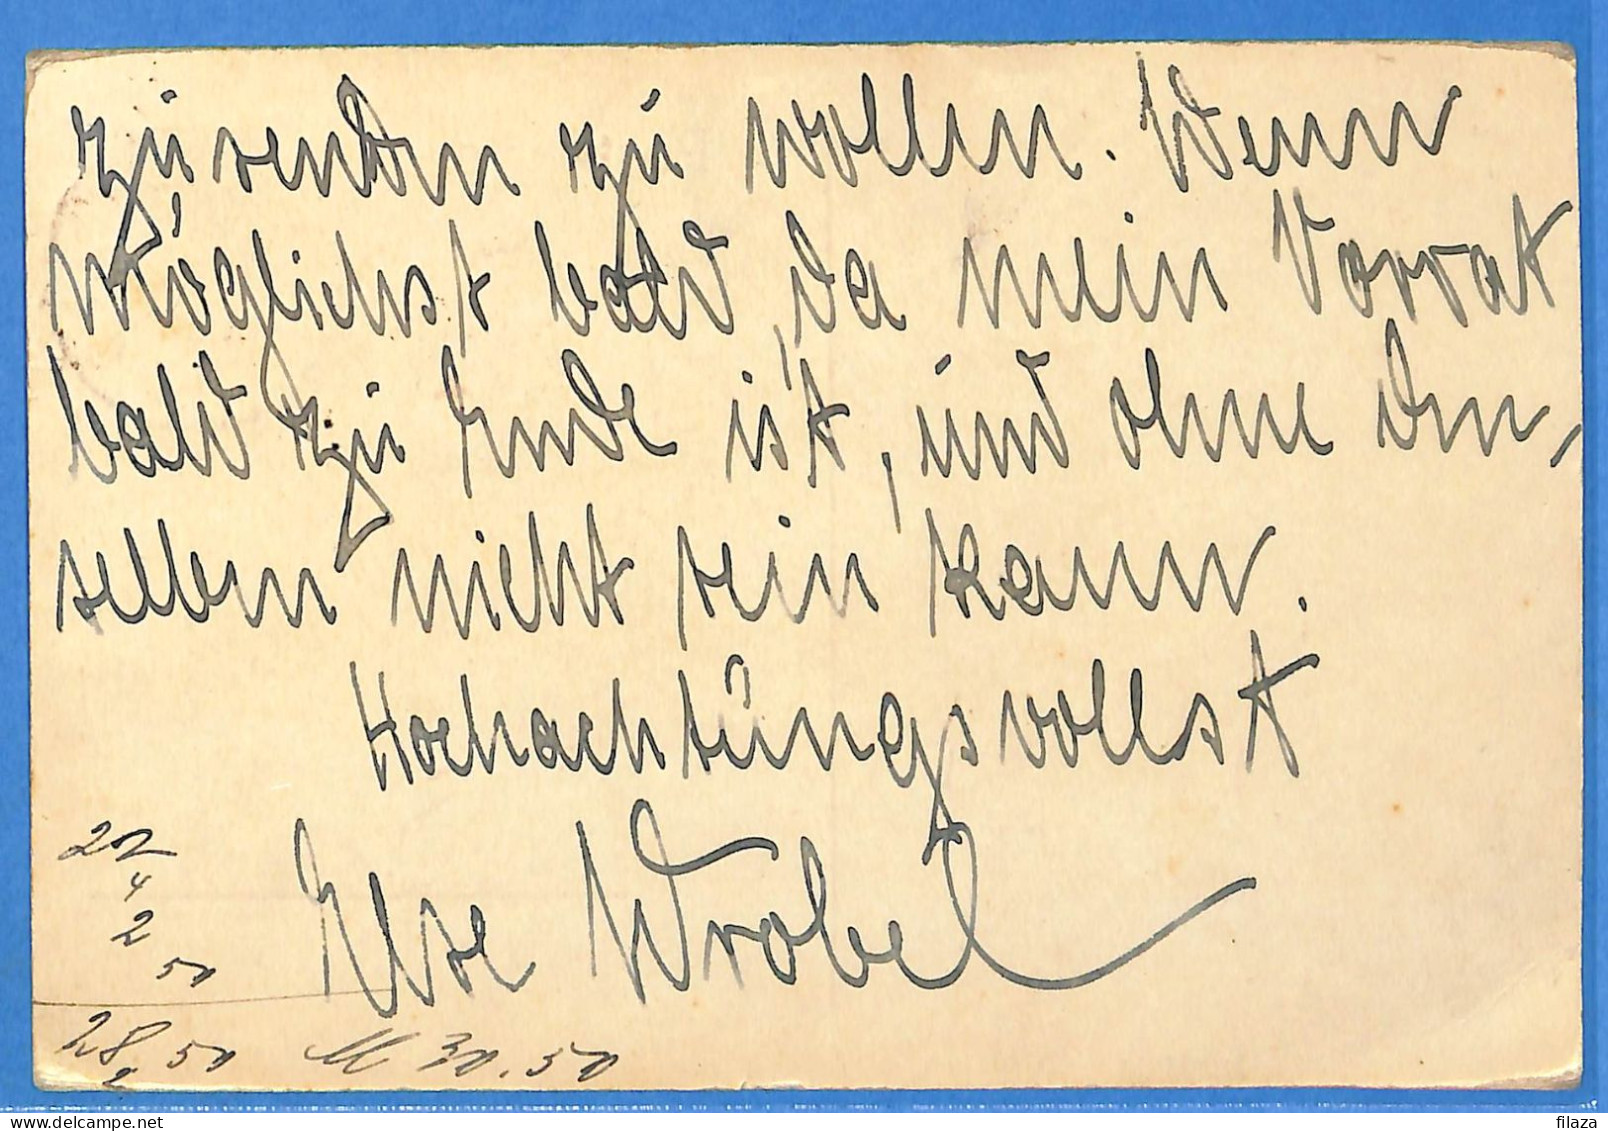 zu senden zu wollen. Wenn
möglichst bald, da mein Vorrat
bald zu Ende ist, und ohne den,
selben nicht sein kann.
Hochachtungsvollst
Else Wrobel
22
4
2
50
28,50 M 30.50
2
hippostcard.com
filaza